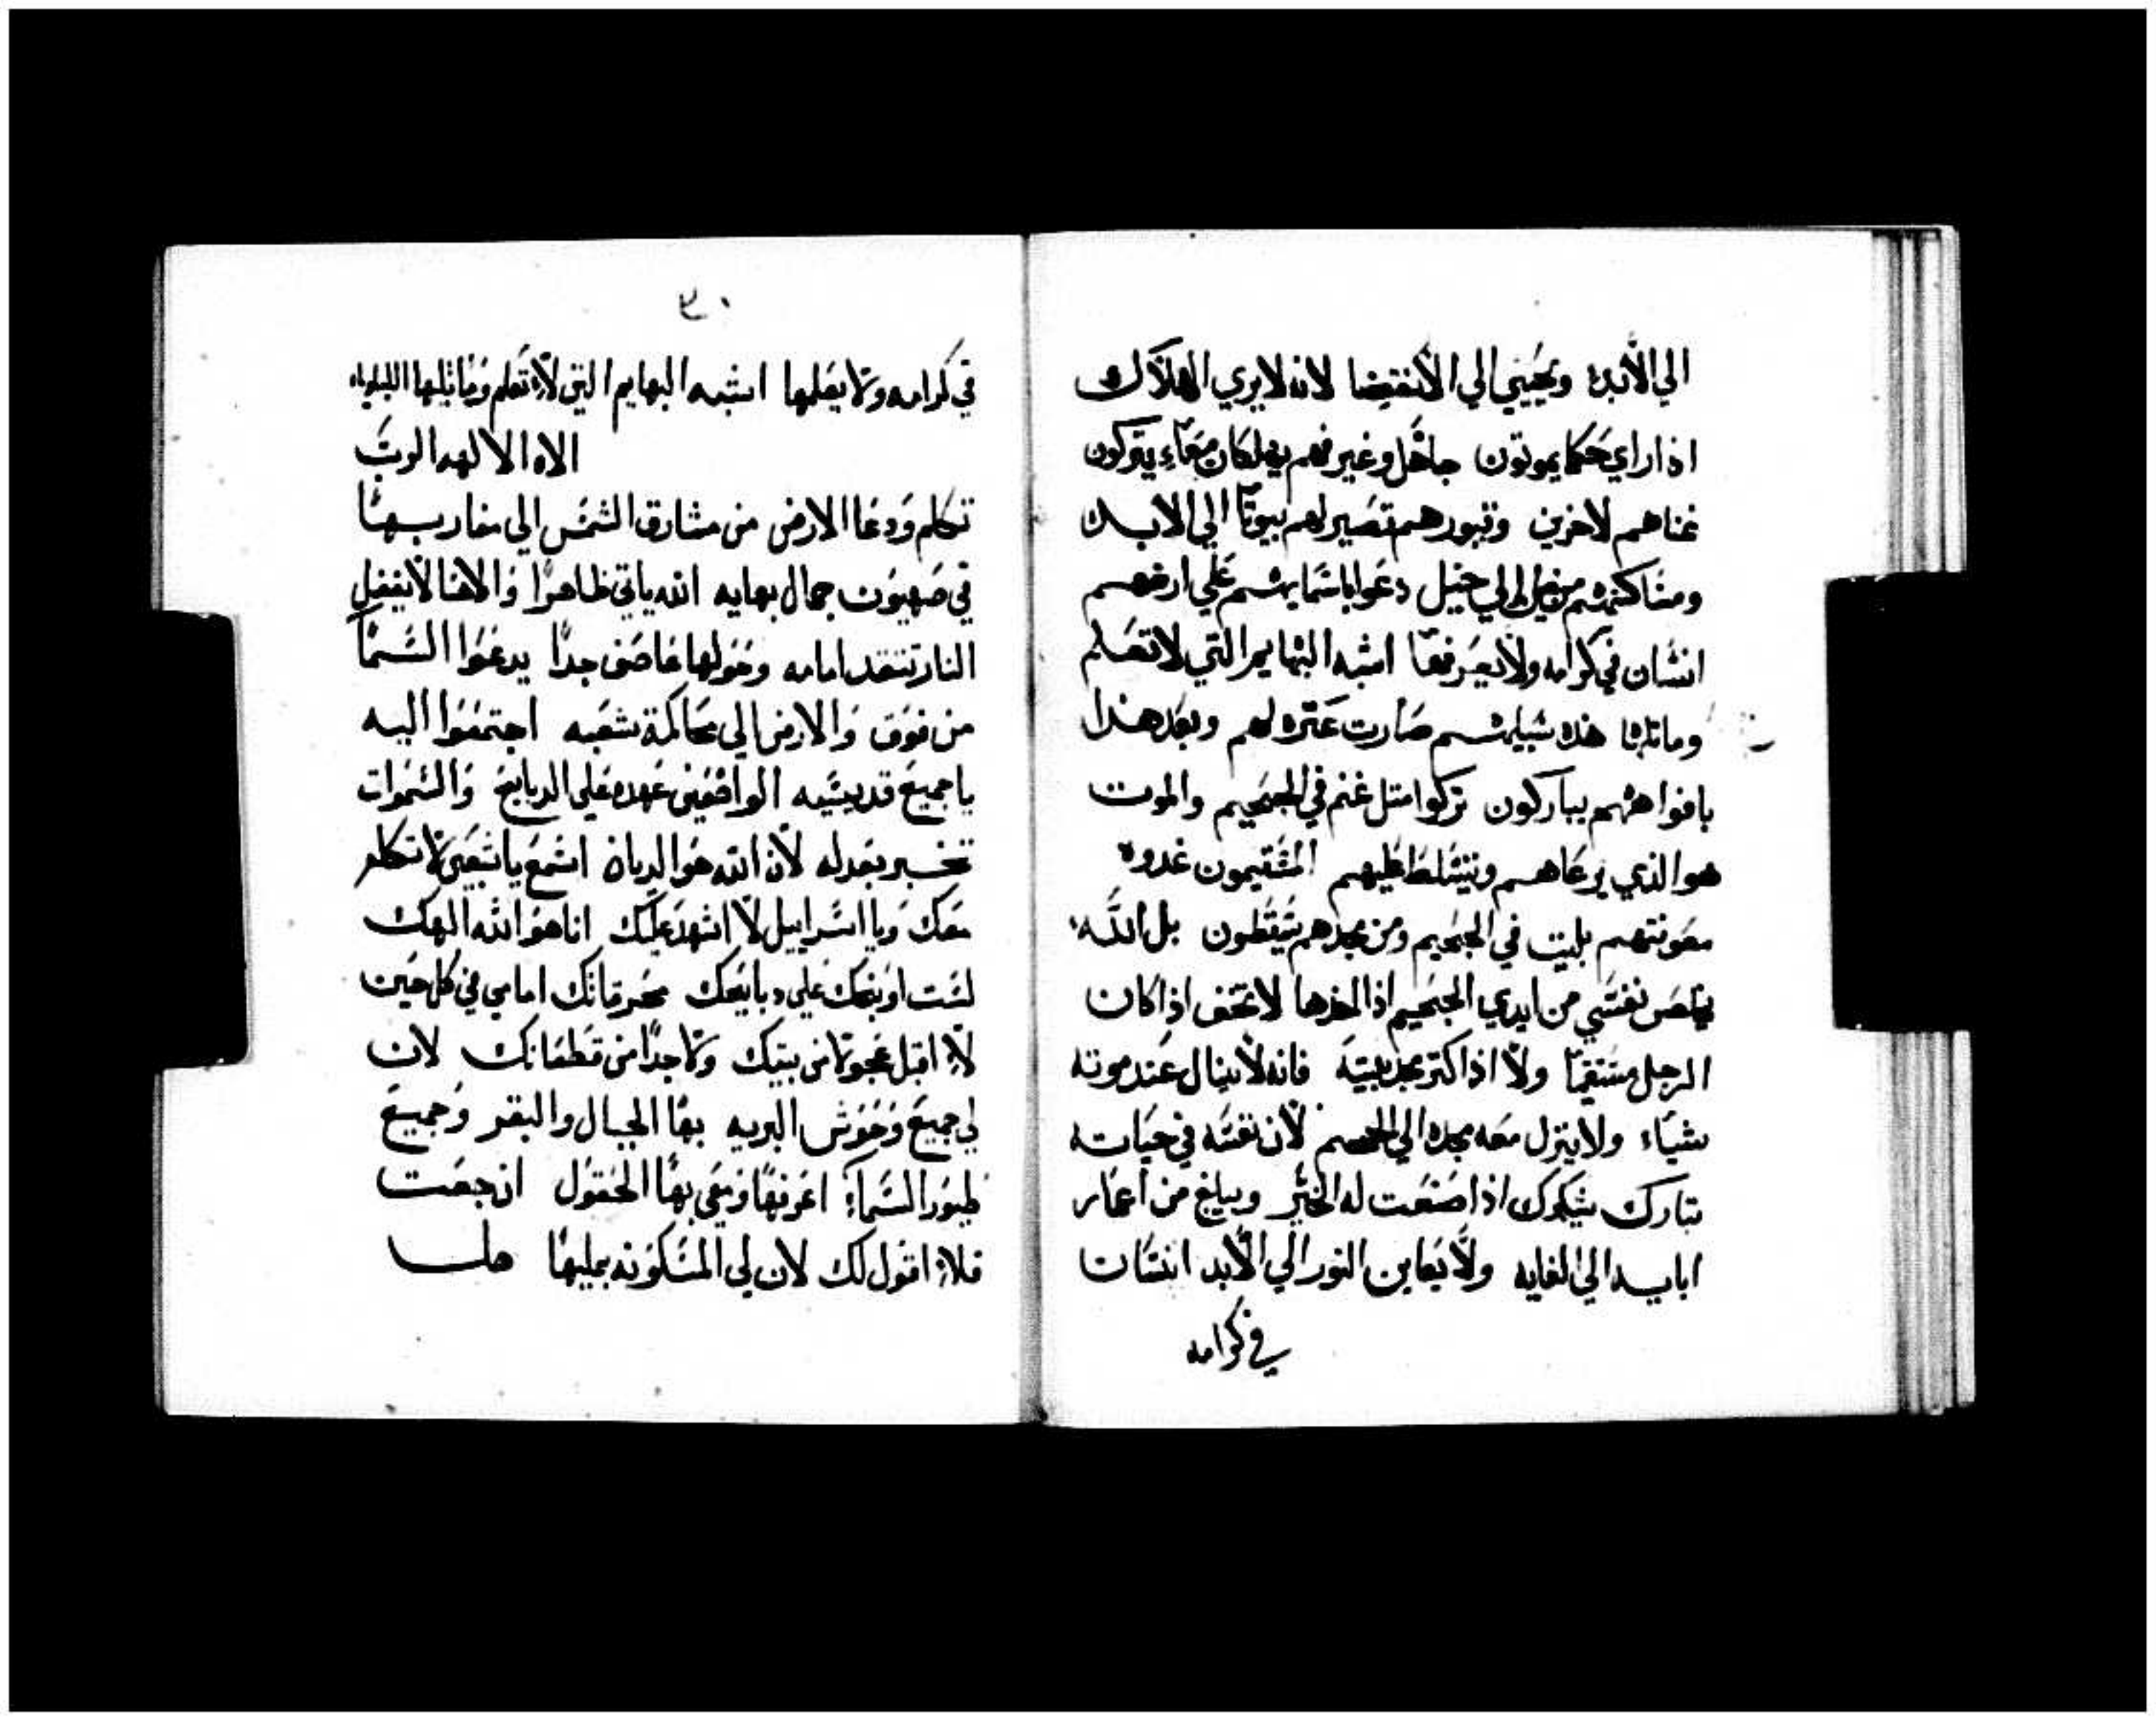 الي الابد ويحيي الي الانقضا لانه لا يري الهلاك
اذا راي حكما يموتون جاهل وغير فهم يهلكان معاء يتركون
غناهم لاخرين وقبورهم تصير لهم بيوتا الي الابد
ومساكنهم من جيل الي جيل دعوا باسمايهم علي ارضهم
انسان في كرامه ولا يعرفها اشبه البهايم التي لا تعلم
وماثلها هذه سبيلهم صارت عتره لهم وبعد هذا
بافواههم يباركون تركوا متل غنم في الجحيم والموت
هو الذي يرعاهم ويتسلط عليهم المستقيمون غدوه
معونتهم بليت في الجحيم ومن مجدهم سيقطون بل الله
يخلص نفسي من ايدي الجحيم اذا اخذها لا تخف اذا كان
الرجل مستغنيا ولا اذا كتر مجد بيته فانه لا ينال عند موته
شياء ولا ينزل معه مجده الي الجحيم لان نفسه في حياته
تبارك يشكرك اذا صنعت له الخير ويبلغ من اعمار
ابايه الي الغايه ولا يعاين النور الي الابد انسان
في كرامه
٣٠
في كرامه ولا يعلمها اشبه البهايم التي لا تعلم وماثلها الليلوياء
الاه الالهه الرب
تكلم ودعا الارض من مشارق الشمس الي مغاربها
في صهيون جمال بهايه الله ياتي ظاهرا والاهنا لا يغفل
النار تتقد امامه وحولها عاصف جدا يدعوا السما
من فوق والارض الي محاكمة شعبه اجتمعوا اليه
يا جميع قديسيه الواضعين عهده علي الدبايح والسموات
تخبر بعدله لان الله هو الديان اسمع يا شعبي لاتكلم
معك ويا اسراييل لا اشهد عليك انا هو الله الهك
لست اوبخك علي دبايحك محرقاتك امامي في كل حين
لا اقبل عجولا من بيتك ولا جدا من قطعانك لان
لي جميع وحوش البريه بها الجبال والبقر وجميع
طيور السماء اعرفها ومعي بها الحقول ان جعت
فلا اقول لك لان لي المسكونه بمليها هل